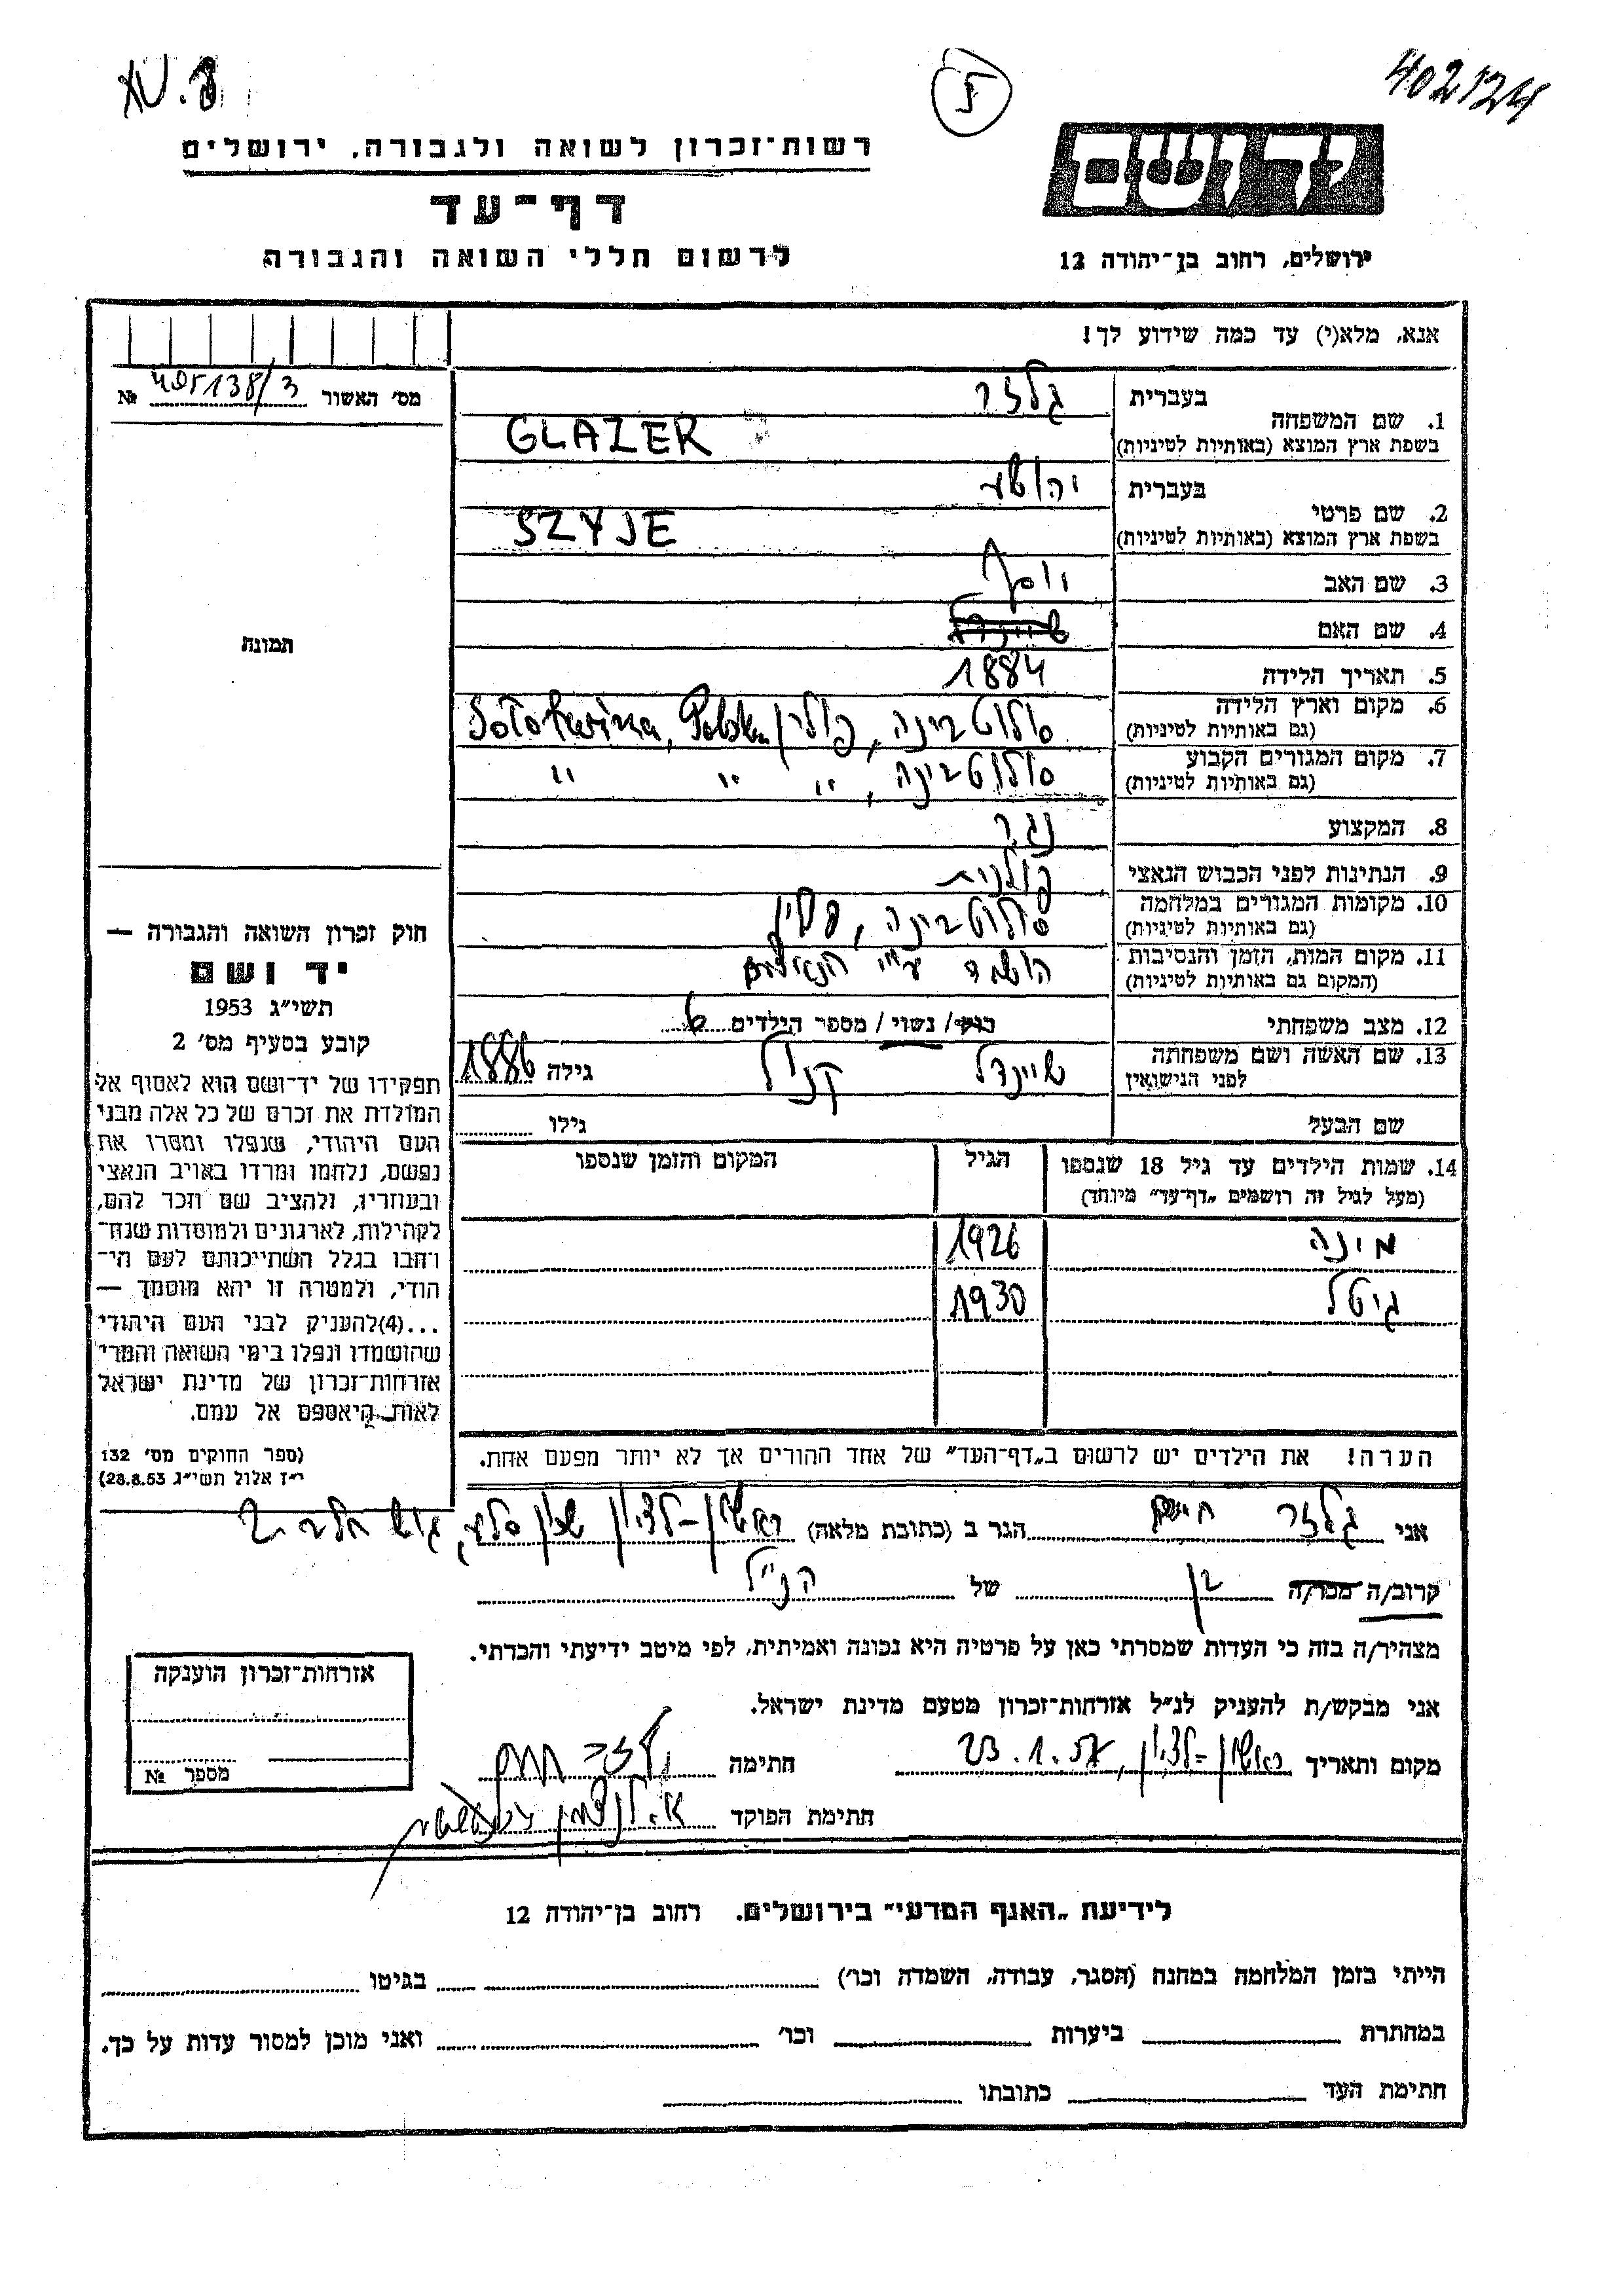 402124
רשות־זכרון לשואה ולגבורה, ירושלים
דף־עד
לרשום חללי השואה והגבורה
יד ושם
ירושלים, רחוב בן־יהודה 12
אנא, מלא(י) עד כמה שידוע לך!
מס׳ האשור 405138/3 №
1. שם המשפחה
בעברית גלזר
בשפת ארץ המוצא (באותיות לטיניות) GLAZER
2. שם פרטי
בעברית יהושע
בשפת ארץ המוצא (באותיות לטיניות) SZYJE
3. שם האב יוסף
4. שם האם
5. תאריך הלידה 1884
6. מקום וארץ הלידה
(גם באותיות לטיניות) סולוטבינה, פולין Sołotwina, Polska
7. מקום המגורים הקבוע
(גם באותיות לטיניות) סולוטבינה, " " "
8. המקצוע נגר
9. הנתינות לפני הכבוש הנאצי פולנית
10. מקומות המגורים במלחמה
(גם באותיות לטיניות) סולוטבינה, פולין
11. מקום המות, הזמן והנסיבות
(המקום גם באותיות לטיניות) הושמד ע"י הנאצים
12. מצב משפחתי רווק/ נשוי/ מספר הילדים 6
13. שם האשה ושם משפחתה
לפני הנישואין שיינדל קניל גילה 1886
שם הבעל גילו
14. שמות הילדים עד גיל 18 שנספו
(מעל לגיל זה רושמים „דף־עד״ מיוחד)
הגיל
המקום והזמן שנספו
מינה 1926
גיטל 1930
הערה! את הילדים יש לרשום ב„דף־העד״ של אחד ההורים אך לא יותר מפעם אחת.
תמונת
חוק זכרון השואה והגבורה —
יד ושם
תשי״ג 1953
קובע בסעיף מס׳ 2
תפקידו של יד־ושם הוא לאסוף אל
המולדת את זכרם של כל אלה מבני
העם היהודי, שנפלו ומסרו את
נפשם, נלחמו ומרדו באויב הנאצי
ובעוזריו, ולהציב שם וזכר להם,
לקהילות, לארגונים ולמוסדות שנח־
רחבו בגלל השתייכותם לעם הי־
הודי, ולמטרה זו יהא מוסמך —
...(4)להעניק לבני העם היהודי
שהושמדו ונפלו בימי השואה והמרי
אזרחות־זכרון של מדינת ישראל
לאות היאספם אל עמם.
(ספר החוקים מס׳ 132
י״ז אלול תשי״ג 28.8.53)
אני גלזר חיים הגר ב (כתובת מלאה) ראשון-לציון
קרוב/ה מכר/ה בן של הנ"ל
מצהיר/ה בזה כי העדות שמסרתי כאן על פרטיה היא נכונה ואמיתית, לפי מיטב ידיעתי והכרתי.
אני מבקש/ת להעניק לנ״ל אזרחות־זכרון מטעם מדינת ישראל.
מקום ותאריך ראשון-לציון, 23.1.57 חתימה גלזר חיים
חתימת הפוקד
אזרחות־זכרון הוענקה
מספר №
לידיעת „האגף המדעי״ בירושלים. רחוב בן־יהודה 12
הייתי בזמן המלחמה במחנה (הסגר, עבודה, השמדה וכו׳) בגיטו
במחתרת ביערות וכו׳ ואני מוכן למסור עדות על כך.
חתימת העד כתובתו